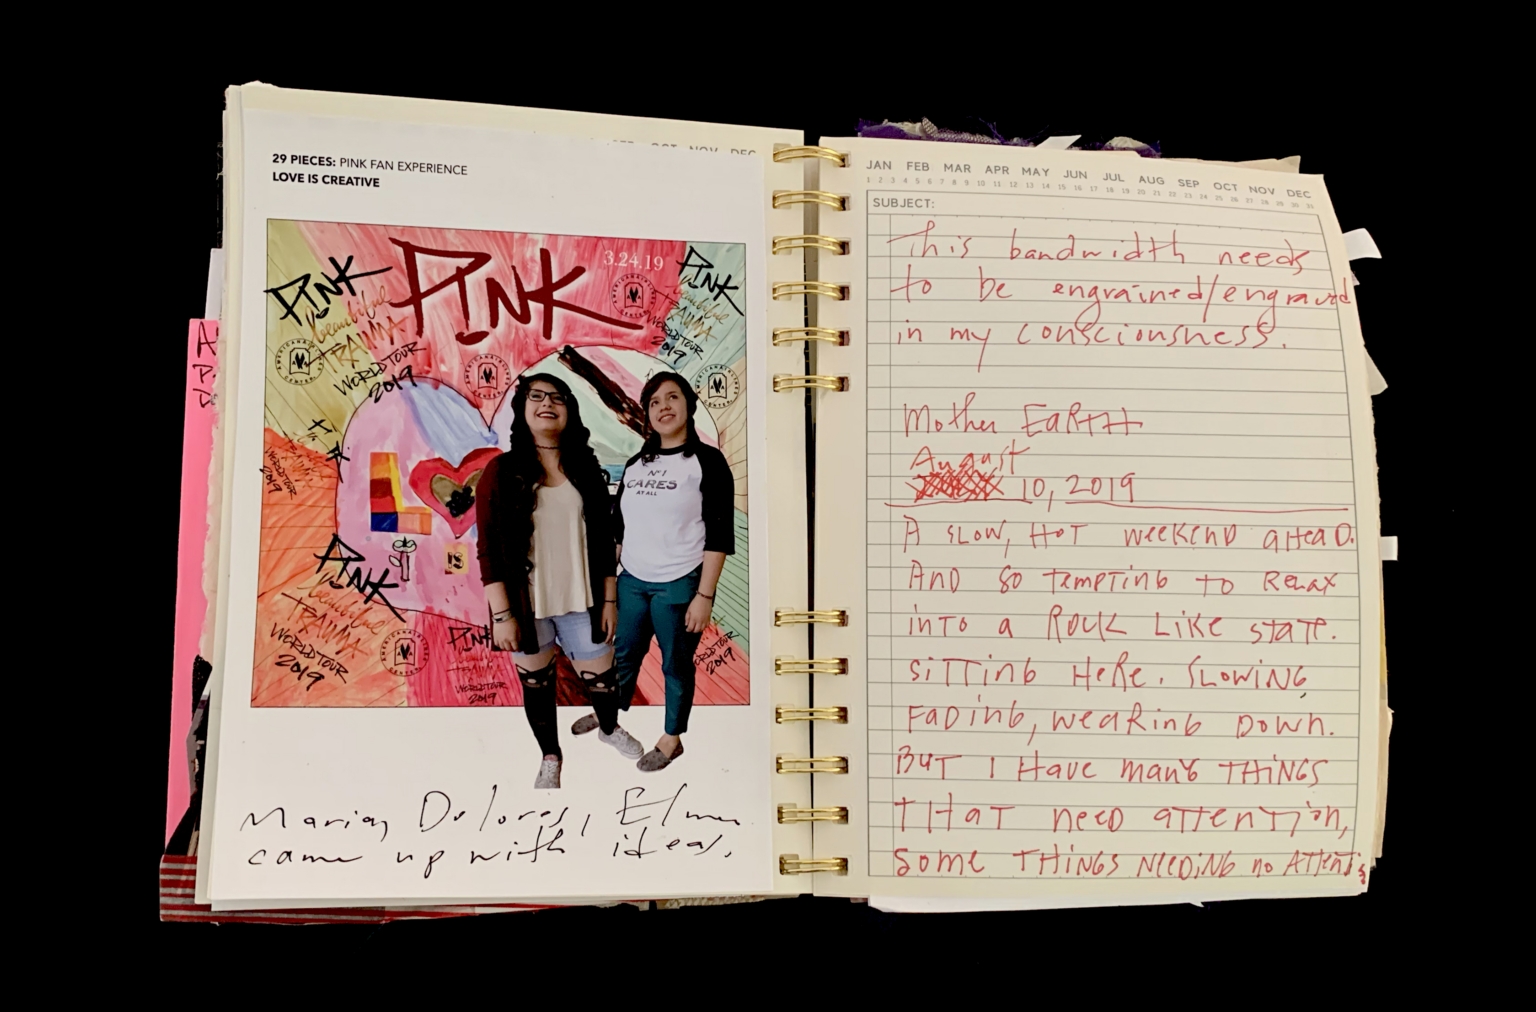 29 PIECES: PINK FAN EXPERIENCE
LOVE IS CREATIVE
P!NK
3.24.19
P!NK
beautiful
TRAUMA
WORLD TOUR
2019
P!NK
beautiful
TRAUMA
WORLD TOUR
2019
LO
IS
No 1
CARES
AT ALL
P!NK
beautiful
TRAUMA
WORLD TOUR
2019
P!NK
WORLD TOUR
2019
WORLD TOUR
2019
WORLD TOUR
2019
Maria, Dolores, Elmer
came up with ideas.
OCT NOV DEC
JAN FEB MAR APR MAY JUN JUL AUG SEP OCT NOV DEC
1 2 3 4 5 6 7 8 9 10 11 12 13 14 15 16 17 18 19 20 21 22 23 24 25 26 27 28 29 30 31
SUBJECT:
This bandwidth needs
to be engrained/engraved
in my consciousness.
Mother EARTH
August
10, 2019
A SLOW, HOT WEEKEND AHEAD.
AND SO TEMPTING TO RELAX
INTO A ROCK LIKE STATE.
SITTING HERE. SLOWING,
FADING, WEARING DOWN.
BUT I HAVE MANY THINGS
THAT NEED ATTENTION,
SOME THINGS NEEDING NO